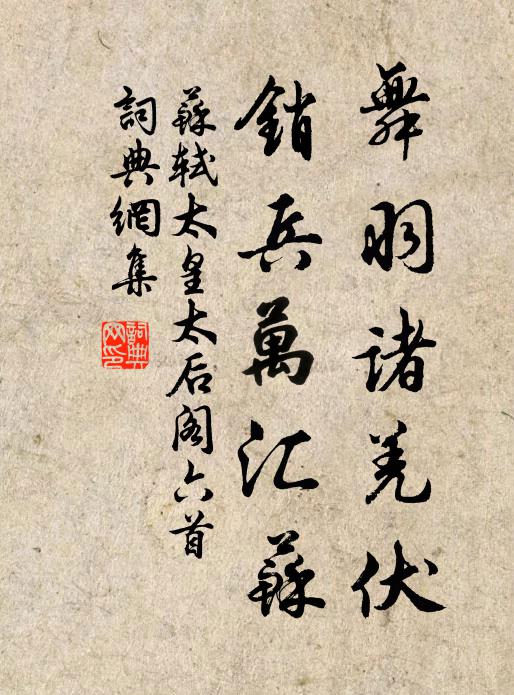 舞羽諸羌伏
銷兵萬汇蘇
蘇軾太皇太后閣六首
詞典網集
詞典網印